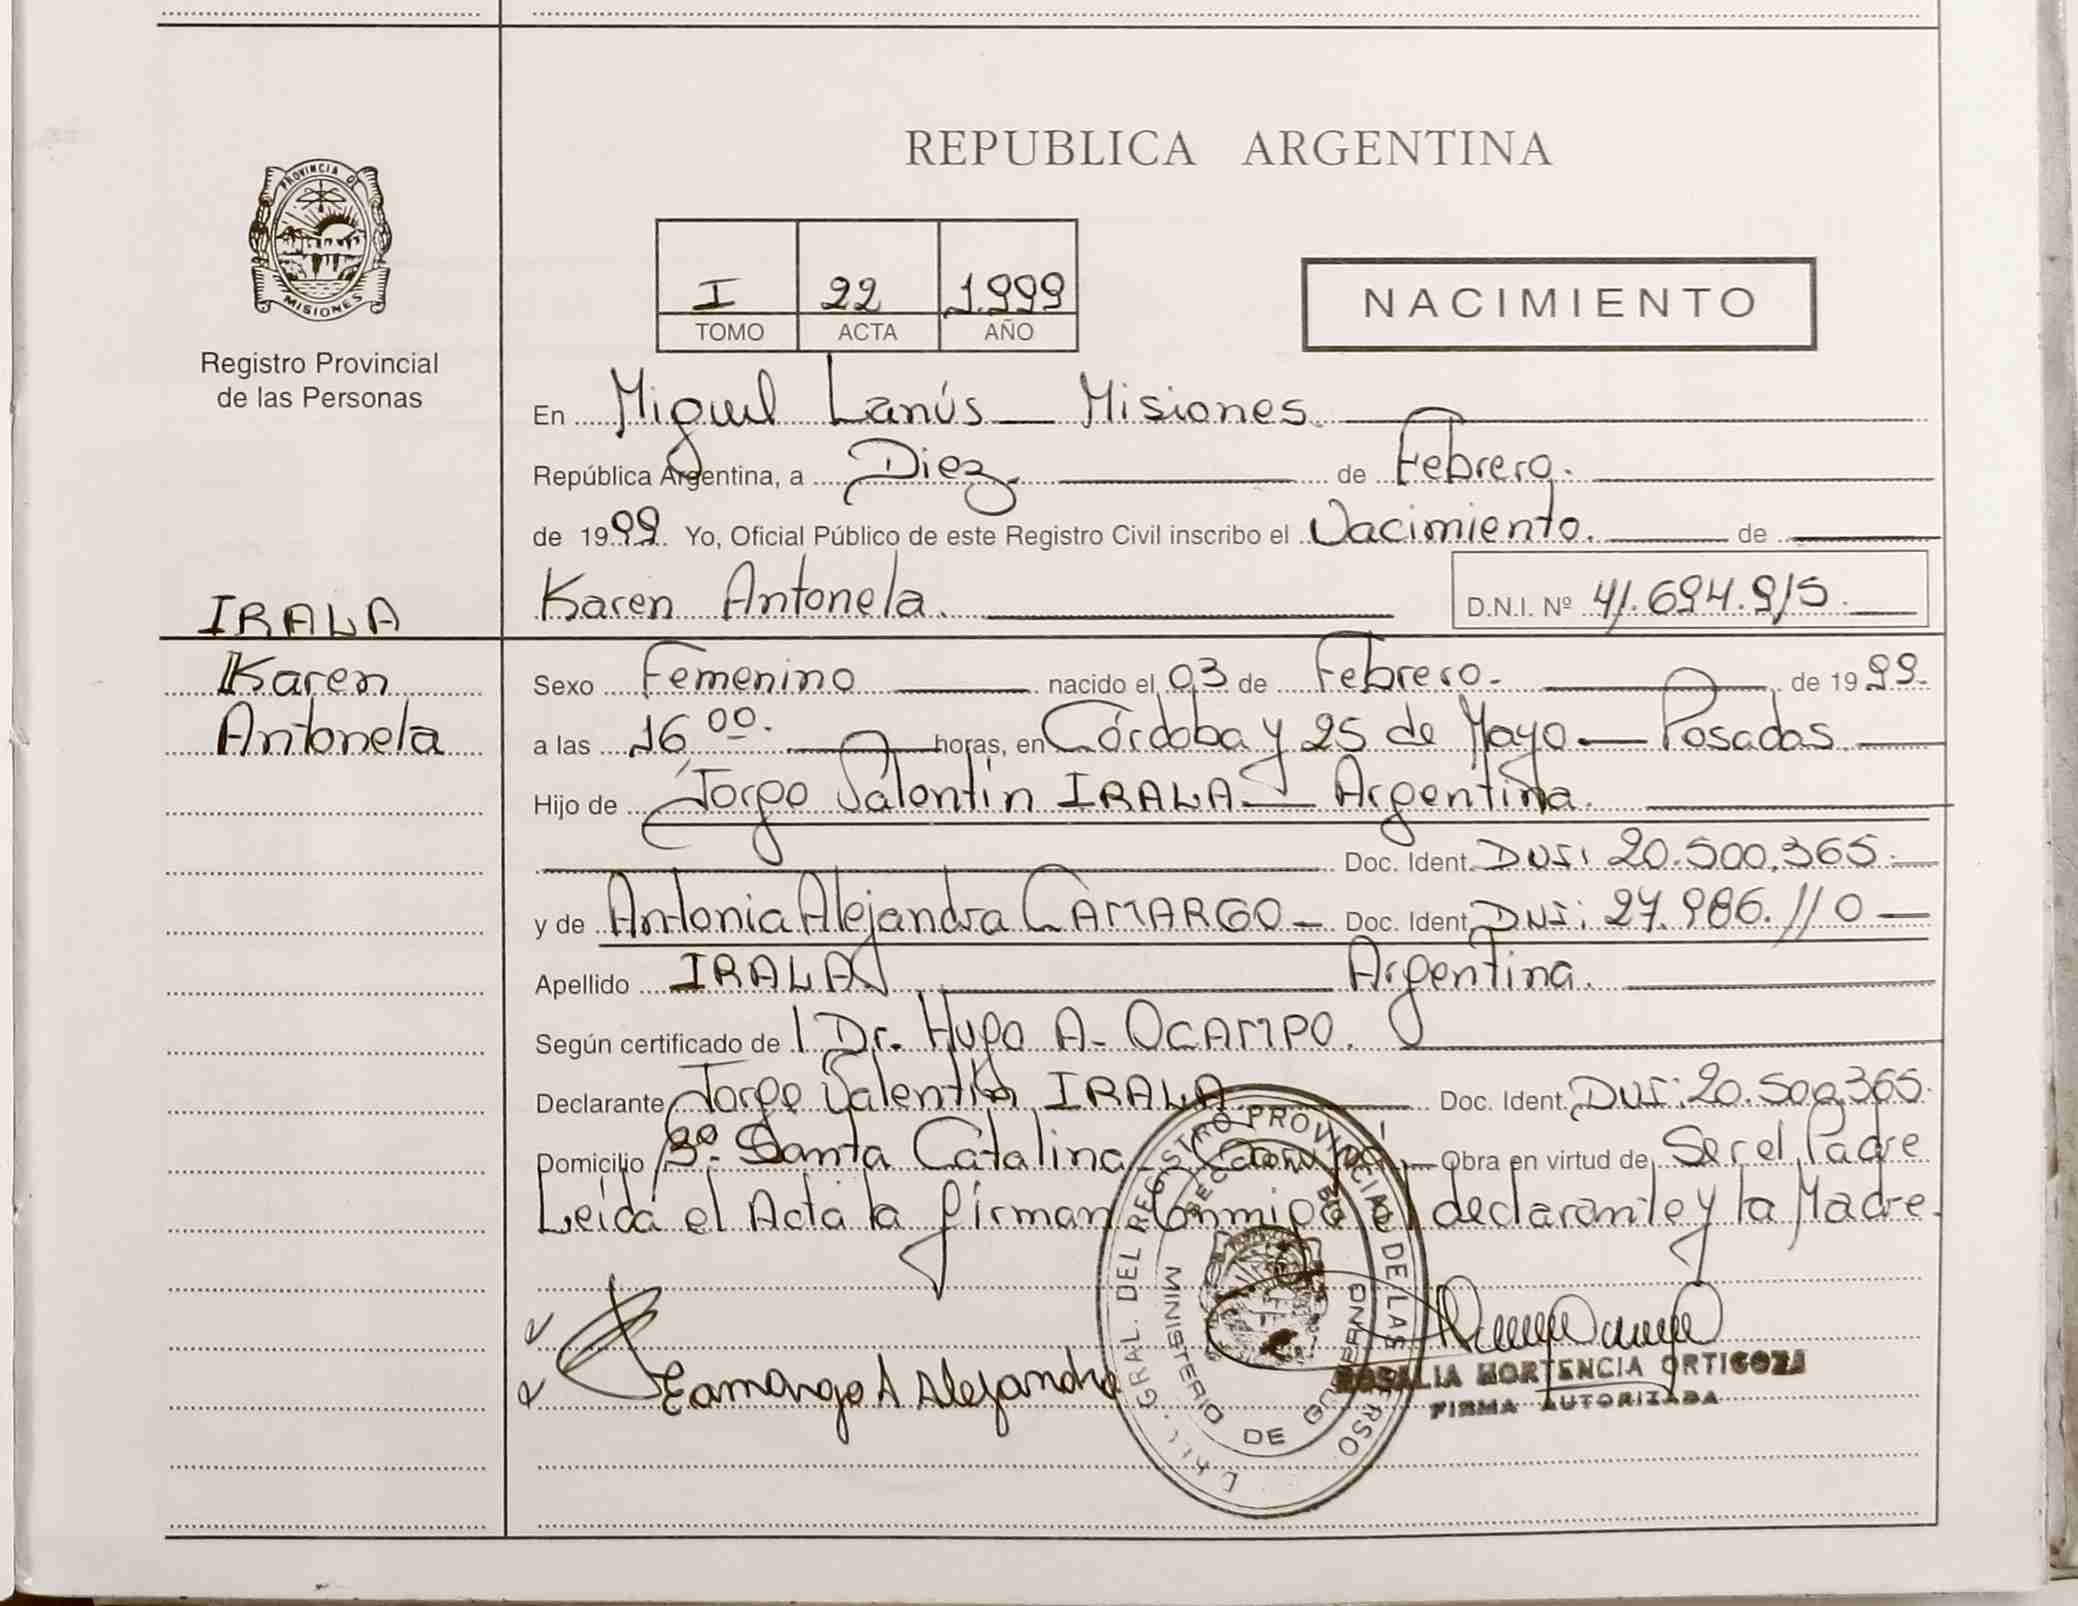 REPUBLICA ARGENTINA
PROVINCIA DE MISIONES
Registro Provincial
de las Personas
I 22 1.999
TOMO ACTA AÑO
NACIMIENTO
En Miguel Lanús — Misiones.
República Argentina, a Diez. de Febrero.
de 1999. Yo, Oficial Público de este Registro Civil inscribo el Nacimiento. de
IRALA
Karen
Antonela
Karen Antonela. D.N.I. Nº 41.694.915.
Sexo Femenino nacido el 03 de Febrero. de 1999.
a las 16 00. horas, en Córdoba y 25 de Mayo — Posadas
Hijo de Jorge Valentín IRALA — Argentina.
Doc. Ident. DNI: 20.500.365.
y de Antonia Alejandra CAMARGO — Doc. Ident. DNI: 27.986.110 —
Apellido IRALA Argentina.
Según certificado de Dr. Hugo A. OCAMPO.
Declarante Jorge Valentín IRALA Doc. Ident. DNI: 20.500.365.
Domicilio Bº. Santa Catalina - Obra en virtud de Ser el Padre
Leída el Acta la firman conmigo el declarante y la Madre.
Camargo A Alejandra
GRAL. DEL REGISTRO PROVINCIAL DE LAS
MINISTERIO DE GOBIERNO
ROSALIA HORTENCIA ORTIGOZA
FIRMA AUTORIZADA